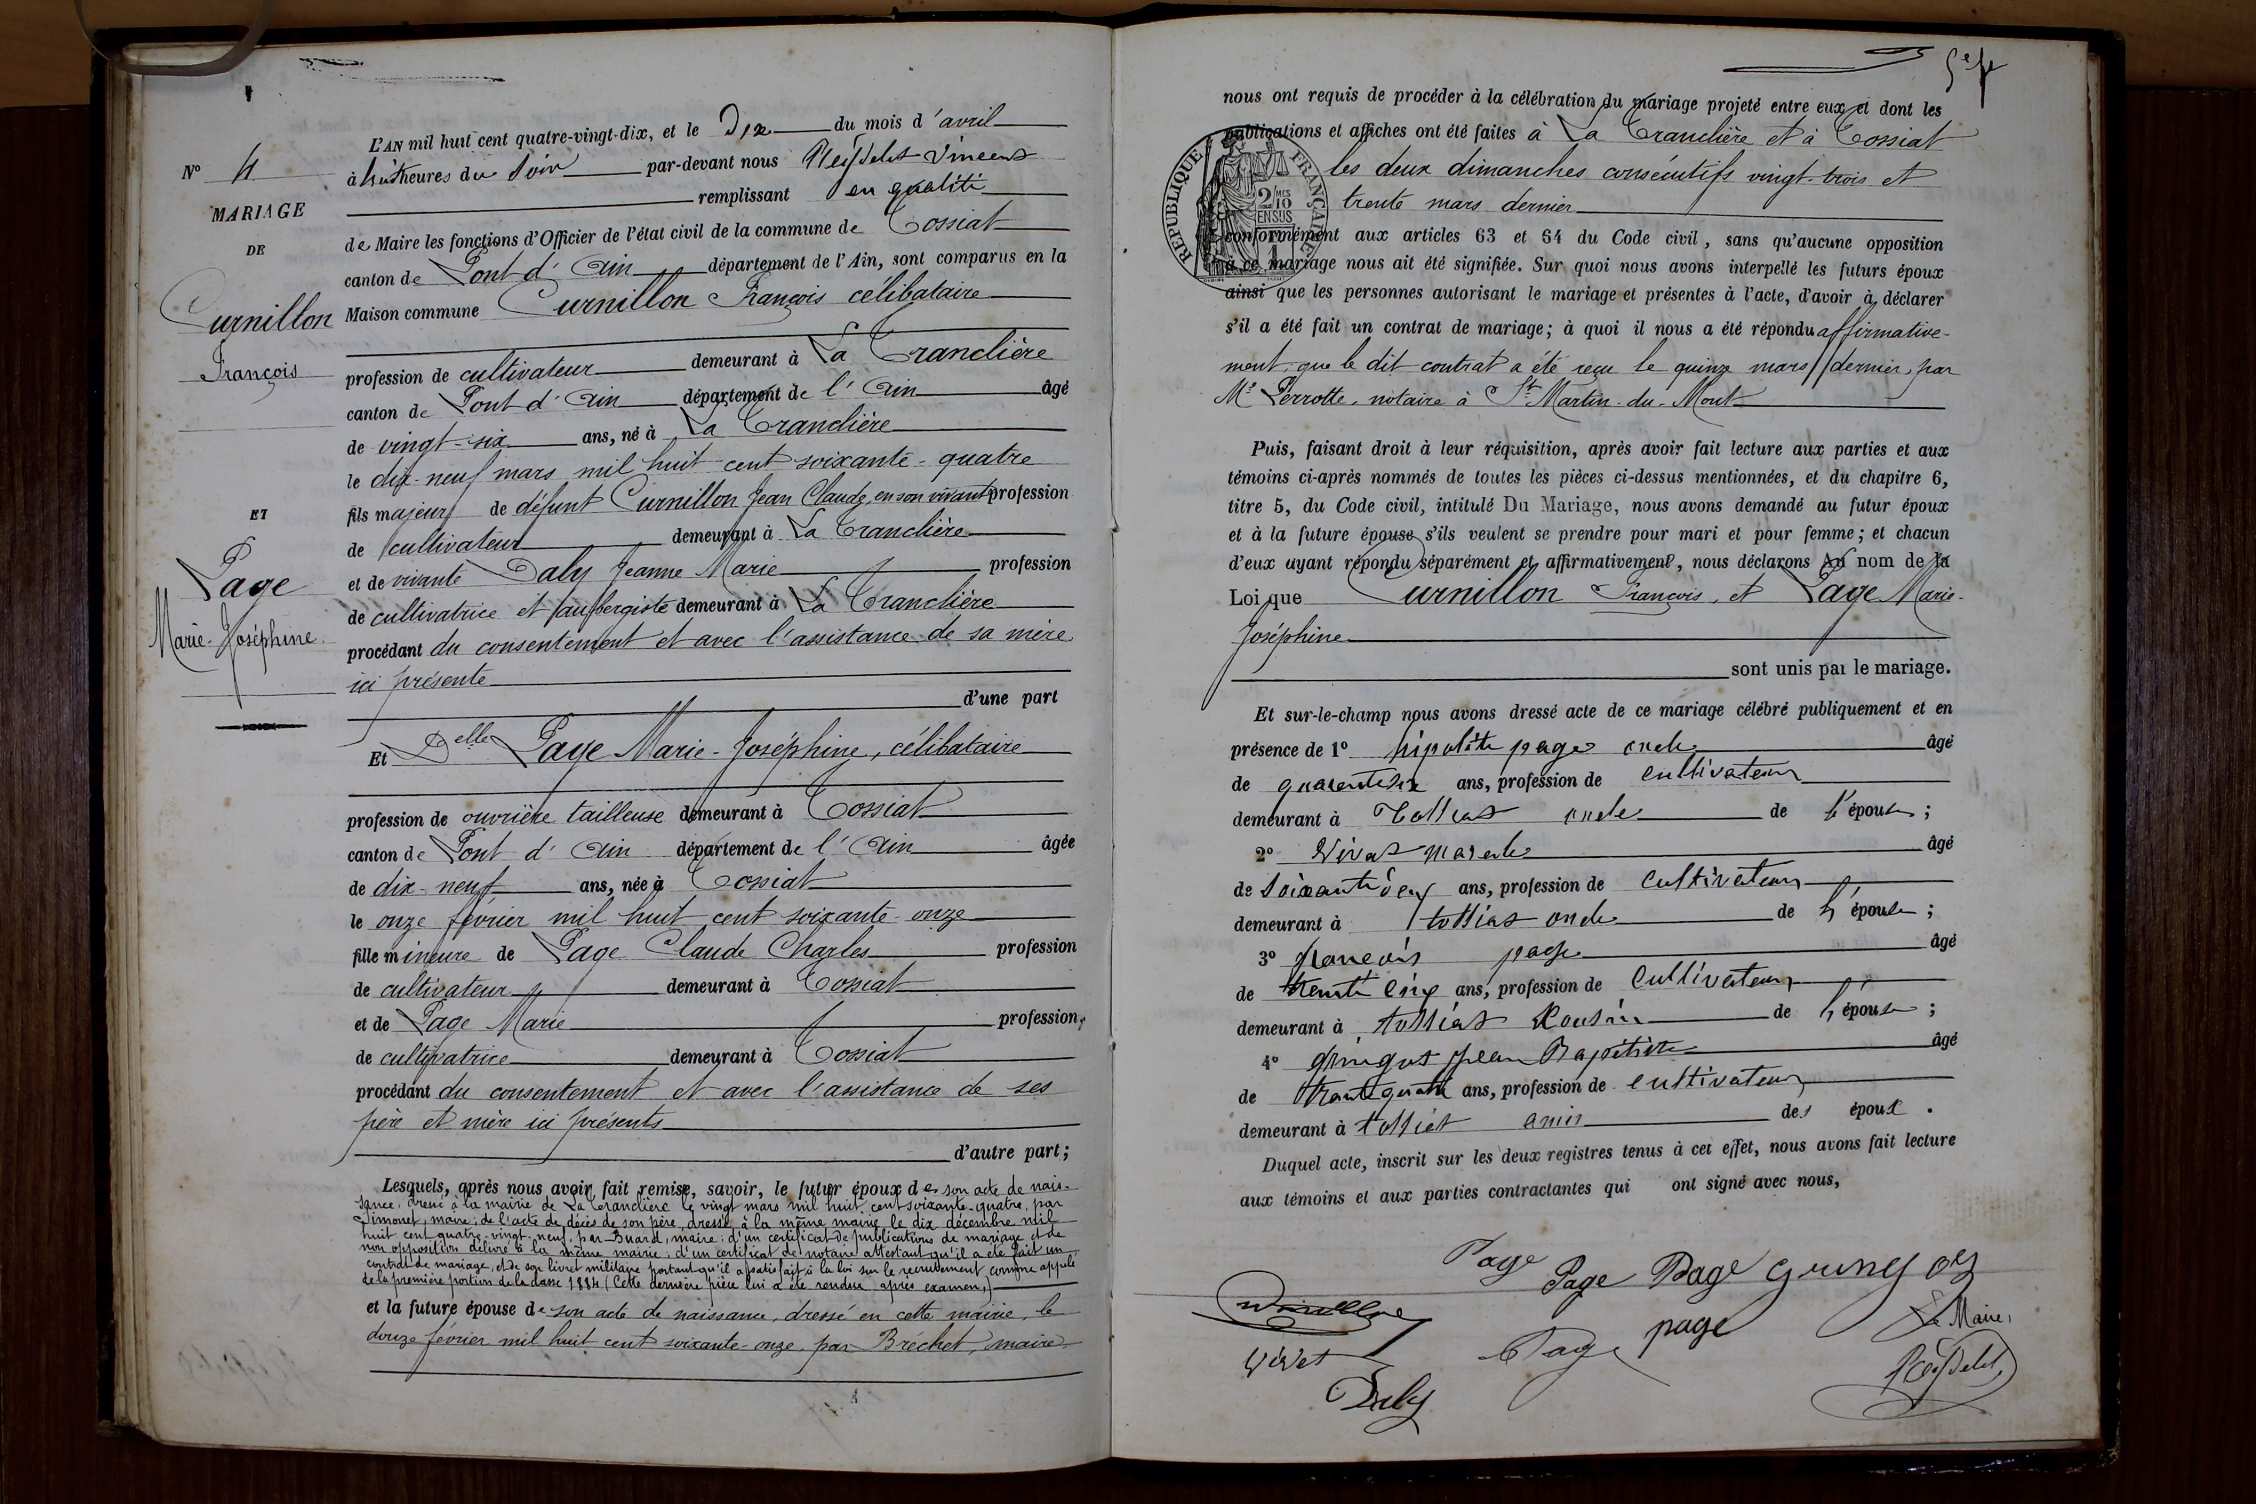 L'AN mil huit cent quatre-vingt-dix, et le Dix du mois d'avril
N° 4
à huit heures du soir par-devant nous Reydelet Vincent
MARIAGE
remplissant en qualité
DE
de Maire les fonctions d'Officier de l'état civil de la commune de Tossiat
canton de Pont d'Ain département de l'Ain, sont comparus en la
Curnillon
Maison commune Curnillon François célibataire
François
profession de cultivateur demeurant à La Tranclière
canton de Pont d'Ain département de l'Ain âgé
de vingt-six ans, né à La Tranclière
le dix-neuf mars mil huit cent soixante-quatre
ET
fils majeur de défunt Curnillon Jean Claude, en son vivant profession
de cultivateur demeurant à La Tranclière
Page
Marie-Joséphine
et de vivante Daly Jeanne Marie profession
de cultivatrice et aubergiste demeurant à La Tranclière
procédant du consentement et avec l'assistance de sa mère
ici présente
d'une part
Et Delle Page Marie-Joséphine, célibataire
profession de ouvrière tailleuse demeurant à Tossiat
canton de Pont d'Ain département de l'Ain âgée
de dix-neuf ans, née à Tossiat
le onze février mil huit cent soixante-onze
fille mineure de Page Claude Charles profession
de cultivateur demeurant à Tossiat
et de Page Marie profession,
de cultivatrice demeurant à Tossiat
procédant du consentement et avec l'assistance de ses
père et mère ici présents
d'autre part;
Lesquels, après nous avoir fait remise, savoir, le futur époux de son acte de nais-
sance, dressé à la mairie de La Tranclière le vingt mars mil huit cent soixante-quatre, par
Simonet, maire; de l'acte de décès de son père, dressé à la même mairie le dix décembre mil
huit cent quatre-vingt-neuf, par Buard, maire; d'un certificat de publications de mariage et de
non opposition délivré à la même mairie; d'un certificat de notaire attestant qu'il a été fait un
contrat de mariage, et de son livret militaire portant qu'il a satisfait à la loi sur le recrutement comme appelé
de la première portion de la classe 1884 (Cette dernière pièce lui a été rendue après examen,)
et la future épouse de son acte de naissance, dressé en cette mairie, le
douze février mil huit cent soixante-onze par Bréchet, maire
5e
nous ont requis de procéder à la célébration du mariage projeté entre eux et dont les
publications et affiches ont été faites à La Tranclière et à Tossiat
les deux dimanches consécutifs vingt-trois et
trente mars dernier
RÉPUBLIQUE FRANÇAISE
2/10 EN SUS
conformément aux articles 63 et 64 du Code civil, sans qu'aucune opposition
à ce mariage nous ait été signifiée. Sur quoi nous avons interpellé les futurs époux
ainsi que les personnes autorisant le mariage et présentes à l'acte, d'avoir à déclarer
s'il a été fait un contrat de mariage; à quoi il nous a été répondu affirmative-
ment, que le dit contrat a été reçu le quinze mars dernier, par
Me Perrotte, notaire à St Martin-du-Mont
Puis, faisant droit à leur réquisition, après avoir fait lecture aux parties et aux
témoins ci-après nommés de toutes les pièces ci-dessus mentionnées, et du chapitre 6,
titre 5, du Code civil, intitulé Du Mariage, nous avons demandé au futur époux
et à la future épouse s'ils veulent se prendre pour mari et pour femme; et chacun
d'eux ayant répondu séparément et affirmativement, nous déclarons Au nom de la
Loi que Curnillon François, et Page Marie-
Joséphine
sont unis par le mariage.
Et sur-le-champ nous avons dressé acte de ce mariage célébré publiquement et en
présence de 1° hipolite page oncle âgé
de quarentesix ans, profession de cultivateur
demeurant à Tossiat oncle de l'épouse;
2° Vivat âgé
de soixante deux ans, profession de cultivateur
demeurant à tossiat oncle de l'épouse;
3° françois page âgé
de trente cinq ans, profession de cultivateur
demeurant à tossiat Cousin de l'épouse;
4° Jean Baptiste âgé
de trante quatre ans, profession de cultivateur
demeurant à tossiat amis des époux.
Duquel acte, inscrit sur les deux registres tenus à cet effet, nous avons fait lecture
aux témoins et aux parties contractantes qui ont signé avec nous,
Page
Page
Page
Le Maire,
page
Page
Vivet
Reydelet
Daly